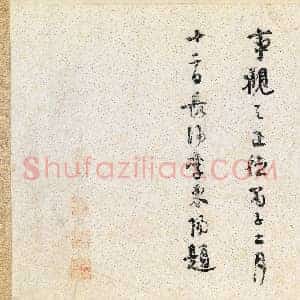 事觀之正德丙子二月
十二日長沙李東陽題
Shufaziliao.COM